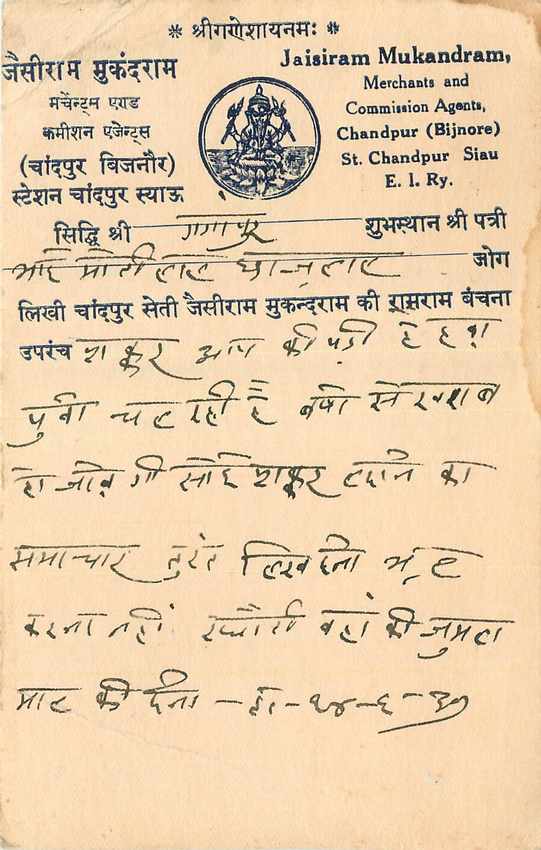 * श्रीगणेशायनमः *
जैसीराम मुकंदराम
मर्चेन्ट्स एण्ड
कमीशन एजेन्ट्स
(चांदपुर बिजनौर)
स्टेशन चांदपुर स्याऊ
Jaisiram Mukandram,
Merchants and
Commission Agents,
Chandpur (Bijnore)
St. Chandpur Siau
E. I. Ry.
सिद्धि श्री गंगापुर शुभस्थान श्री पत्री
भाई मोतीलाल जोग
लिखी चांदपुर सेती जैसीराम मुकन्दराम की रामराम बंचना
उपरंच शक्कर आप की पड़ी है हवा
पुर्वा चल रही है वर्षा से खराब
हो जावेगी सोई शक्कर का
समाचार तुरंत लिख देना भूल
करना नहीं वहां की जुमला
माल की देना